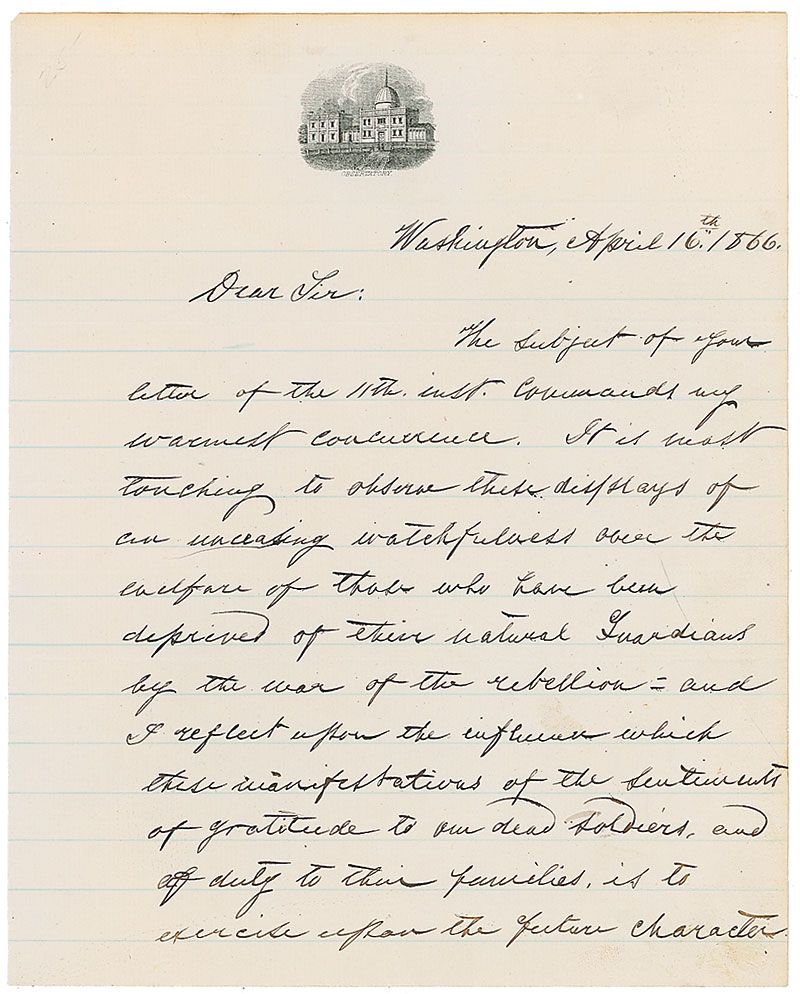 OBSERVATORY
Washington, April 16.th 1866.
Dear Sir:
The subject of your
letter of the 11th. inst. commands my
warmest concurrence. It is most
touching to observe these displays of
an unceasing watchfulness over the
welfare of those who have been
deprived of their natural Guardians
by the war of the rebellion = and
I reflect upon the influence which
these manifestations of the sentiments
of gratitude to our dead soldiers, and
of duty to their families, is to
exercise upon the future character